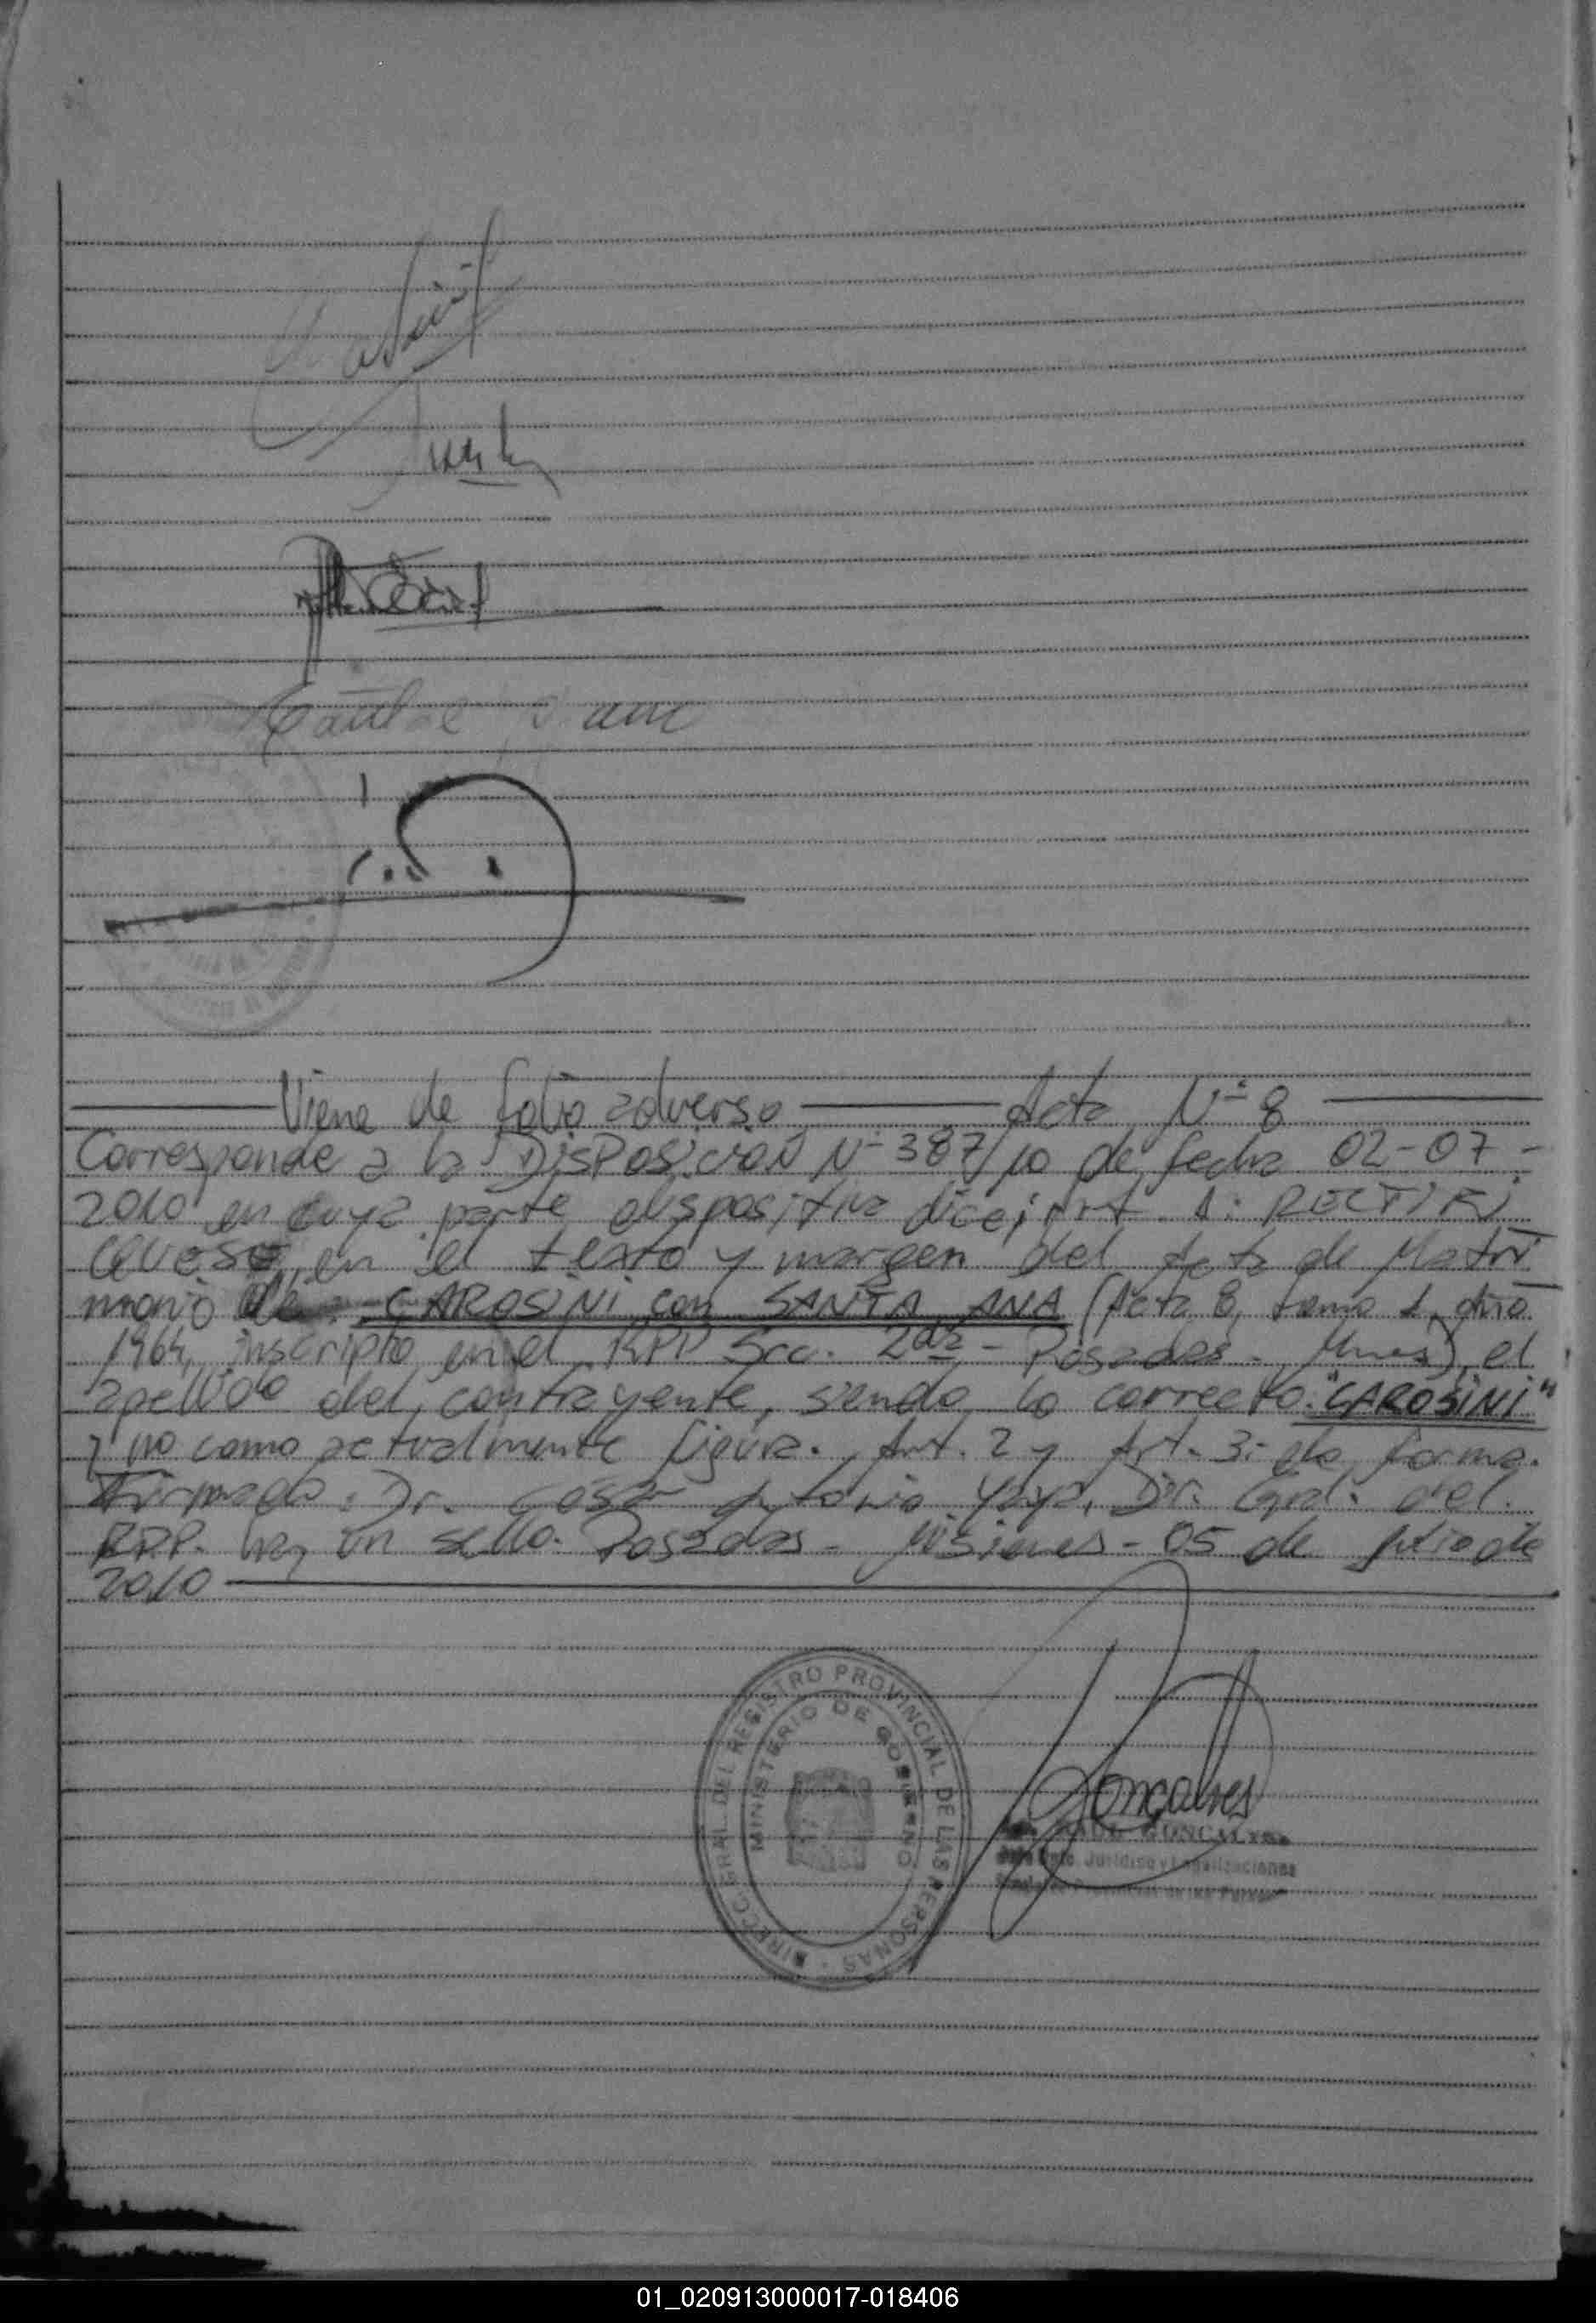 Viene de folio adverso Acta Nº 8
Corresponde a la DISPOSICIÓN Nº 387/10 de fecha 02-07-
2010 en cuya parte dispositiva dice: Art. 1: RECTIFÍ
QUESE, en el texto y margen del Acta de Matri
monio de CAROSINI con SANTA ANA (Acta 8, tomo 1, año
1964, inscripto en el RPP Secc. 2da - Posadas - Mnes), el
apellido del contrayente, siendo lo correcto: "CAROSINI"
y no como actualmente figura. Art. 2 y Art. 3: de forma.
Firmado: Dr. Antonio Dir. Gral. del
RPP. hay un sello. Posadas - Misiones - 05 de Julio de
2010
DIRECC. GRAL. DEL REGISTRO PROVINCIAL DE LAS PERSONAS
MINISTERIO DE GOBIERNO
Goncalves
RAUL GONCALVES
Dpto. Jurídico y Legalizaciones
01_020913000017-018406